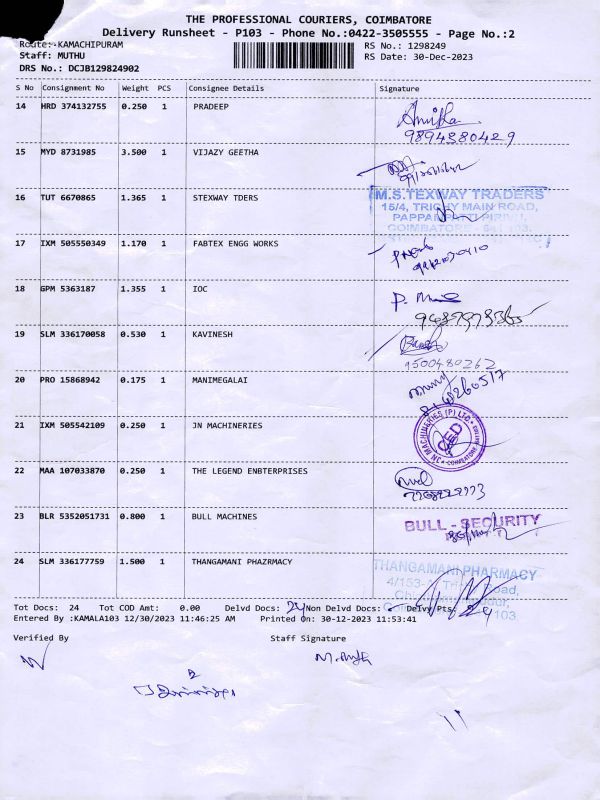 THE PROFESSIONAL COURIERS, COIMBATORE
Delivery Runsheet - P103 - Phone No.:0422-3505555 - Page No.:2
Route:-KAMACHIPURAM
RS No.: 1298249
Staff: MUTHU
RS Date: 30-Dec-2023
DRS No.: DCJB129824902
S No Consignment No Weight PCS Consignee Details Signature
14 HRD 374132755 0.250 1 PRADEEP
9894380429
15 MYD 8731985 3.500 1 VIJAZY GEETHA
16 TUT 6670865 1.365 1 STEXWAY TDERS
M.S.TEXWAY TRADERS
15/4, TRICHY MAIN ROAD,
17 IXM 505550349 1.170 1 FABTEX ENGG WORKS
18 GPM 5363187 1.355 1 IOC
19 SLM 336170058 0.530 1 KAVINESH
9500480262
20 PRO 15868942 0.175 1 MANIMEGALAI
21 IXM 505542109 0.250 1 JN MACHINERIES
JN MACHINERIES (P) LTD.
22 MAA 107033870 0.250 1 THE LEGEND ENBTERPRISES
23 BLR 5352051731 0.800 1 BULL MACHINES
BULL - SECURITY
24 SLM 336177759 1.500 1 THANGAMANI PHAZRMACY
THANGAMANI PHARMACY
Tot Docs: 24 Tot COD Amt: 0.00 Delvd Docs: 24 Non Delvd Docs: Delvy Pts: 24
Entered By :KAMALA103 12/30/2023 11:46:25 AM Printed On: 30-12-2023 11:53:41
Verified By Staff Signature